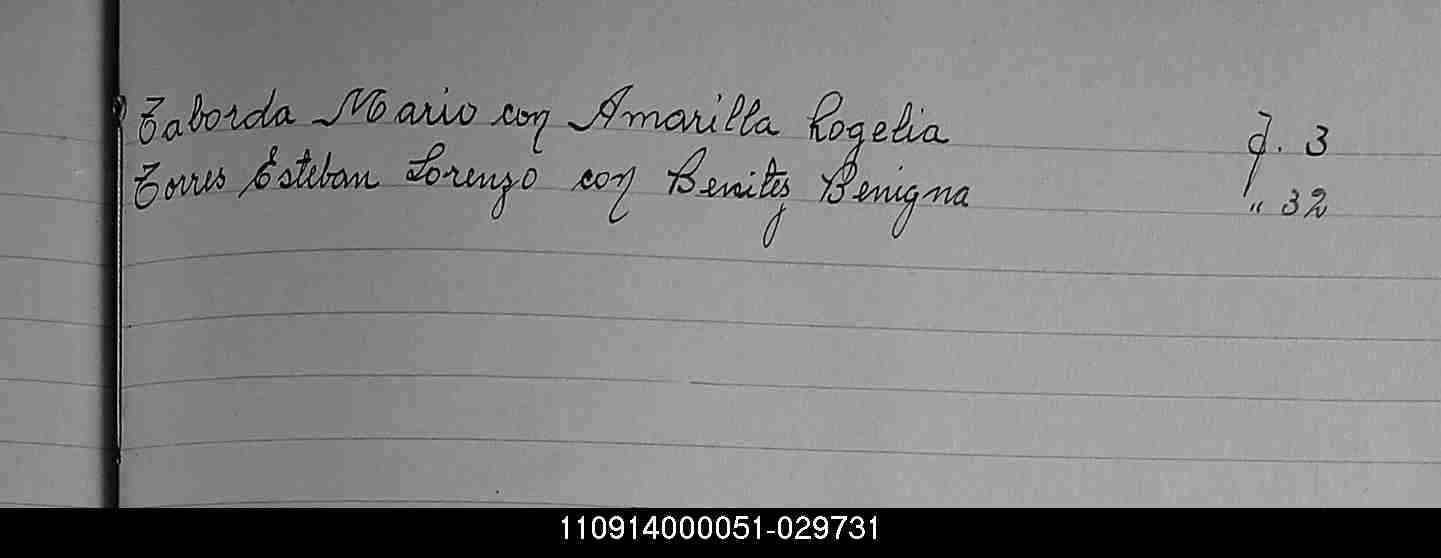 Taborda Mario con Amarilla Rogelia f. 3
Torres Esteban Lorenzo con Benites Benigna " 32
110914000051-029731